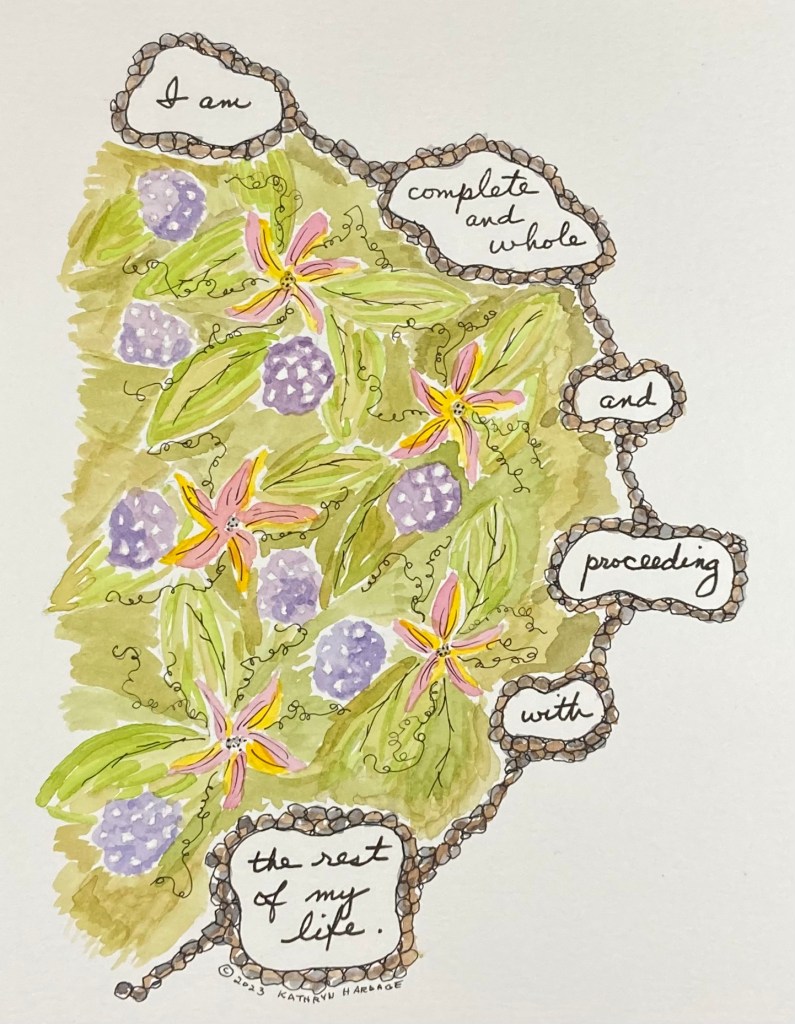 I am
complete
and
whole
and
proceeding
with
the rest
of my
life.
© 2023 KATHRYN HARBAGE